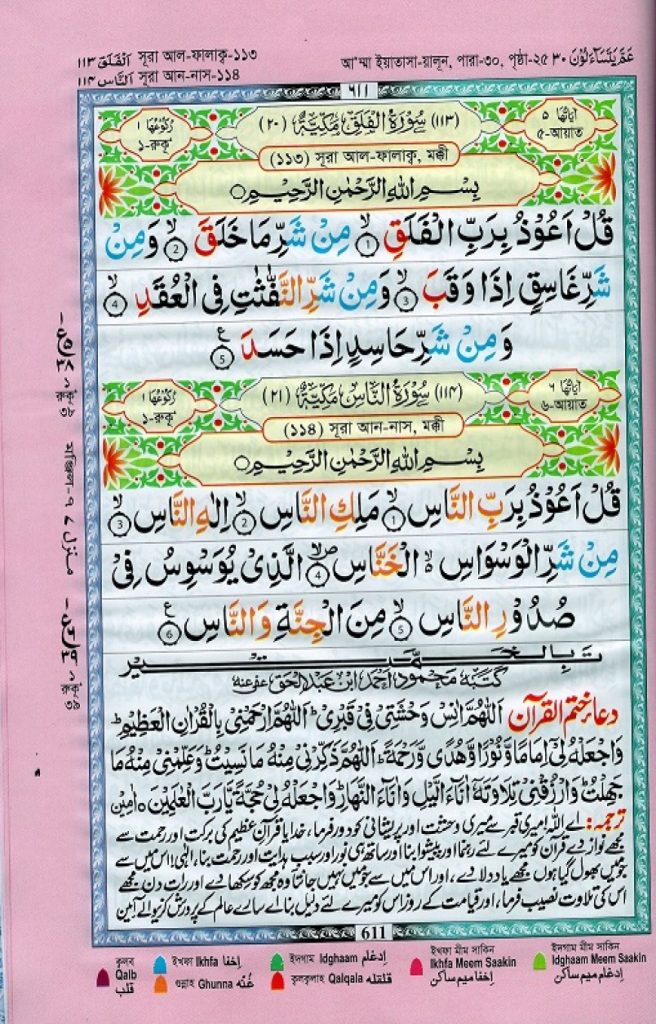 সূরা আল-ফালাক্ব-১১৩ اَلْفَلَق ١١٣
সূরা আন-নাস-১১৪ اَلنَّاس ١١٤
আ'ম্মা ইয়াতাসা-য়ালূন, পারা-৩০, পৃষ্ঠা-২৫ عَمَّ يَتَسَآءَلُوْنَ ٣٠
٦١١
اٰيَاتُهَا ٥
৫-আয়াত
(١١٣) سُوْرَةُ الْفَلَقِ مَكِّيَّةٌ (٢٠)
رُكُوْعُهَا ١
১-রুকূ'
(১১৩) সূরা আল-ফালাক্ব, মক্কী
بِسْمِ اللهِ الرَّحْمٰنِ الرَّحِيْمِ
قُلْ اَعُوْذُ بِرَبِّ الْفَلَقِ ۙ1 مِنْ شَرِّ مَا خَلَقَ ۙ2 وَمِنْ
شَرِّ غَاسِقٍ اِذَا وَقَبَ ۙ3 وَمِنْ شَرِّ النَّفّٰثٰتِ فِى الْعُقَدِ ۙ4
وَمِنْ شَرِّ حَاسِدٍ اِذَا حَسَدَ 5 ع
اٰيَاتُهَا ٦
৬-আয়াত
(١١٤) سُوْرَةُ النَّاسِ مَكِّيَّةٌ (٢١)
رُكُوْعُهَا ١
১-রুকূ'
(১১৪) সূরা আন-নাস, মক্কী
بِسْمِ اللهِ الرَّحْمٰنِ الرَّحِيْمِ
قُلْ اَعُوْذُ بِرَبِّ النَّاسِ ۙ1 مَلِكِ النَّاسِ ۙ2 اِلٰهِ النَّاسِ ۙ3
مِنْ شَرِّ الْوَسْوَاسِ ۙ الْخَنَّاسِ 4 الَّذِىْ يُوَسْوِسُ فِىْ
صُدُوْرِ النَّاسِ ۙ5 مِنَ الْجِنَّةِ وَالنَّاسِ 6 ع
تَمَّتْ بِالْخَيْر
كتبهٗ محمود احمد ابن عبدالحق عفی عنہ
دعاء ختم القرآن اَللّٰهُمَّ اٰنِسْ وَحْشَتِىْ فِىْ قَبْرِىْ اَللّٰهُمَّ ارْحَمْنِىْ بِالْقُرْاٰنِ الْعَظِيْمِ
وَاجْعَلْهُ لِىْ اِمَامًا وَّنُوْرًا وَّهُدًى وَّرَحْمَةً اَللّٰهُمَّ ذَكِّرْنِىْ مِنْهُ مَا نَسِيْتُ وَعَلِّمْنِىْ مِنْهُ مَا
جَهِلْتُ وَارْزُقْنِىْ تِلَاوَتَهٗ اٰنَآءَ الَّيْلِ وَاٰنَآءَ النَّهَارِ وَاجْعَلْهُ لِىْ حُجَّةً يَّارَبَّ الْعٰلَمِيْنَ ۝ اٰمِيْن
ترجمہ: اے اللہ! میری قبر سے میری وحشت اور پریشانی کو دور فرما، خدایا قرآن عظیم کی برکت اور رحمت سے
مجھے نواز دے قرآن کو میرے لئے رہنما اور پیشوا بنا اور ساتھ ہی نور اور سبب ہدایت اور رحمت بنا، الٰہی! اس میں سے
جو میں بھول گیا ہوں مجھے یاد دلا دے، اور اس میں سے جو میں نہیں جانتا وہ مجھ کو سکھا دے اور رات دن مجھے
اس کی تلاوت نصیب فرما، اور قیامت کے روز اس کو میرے لئے دلیل بنا اے سارے عالم کے پرورش کرنیوالے آمین
611
منزل ٧ মঞ্জিল-৭
ক্বলব Qalb قلب
ইখফা Ikhfa اِخفا
গুন্নাহ Ghunna غُنّہ
ইদগাম Idghaam اِدغام
ক্বলক্বলাহ Qalqala قلقله
ইখফা মীম সাকিন
Ikhfa Meem Saakin
اِخفا میم ساکن
ইদগাম মীম সাকিন
Idghaam Meem Saakin
اِدغام میم ساکن